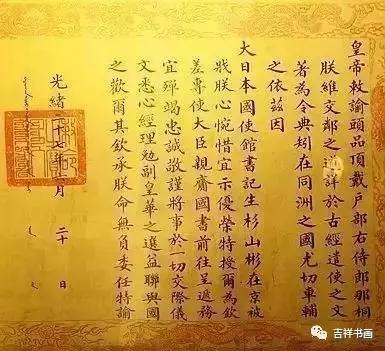 皇帝敕諭頭品頂戴戶部右侍郎那桐
朕維交鄰之道詳於古經遣使之文
著為令典矧在同洲之國尤切車輔
之依茲因
大日本國使館書記生杉山彬在京被
戕朕心惋惜宜示優榮特授爾為欽
差專使大臣親齎國書前往呈遞務
宜殫竭忠誠敬謹將事於一切交際儀
文悉心經理勉副皇華之選益聯與國
之歡爾其欽承朕命無負委任特諭
光緒十七年月二十日
吉祥书画